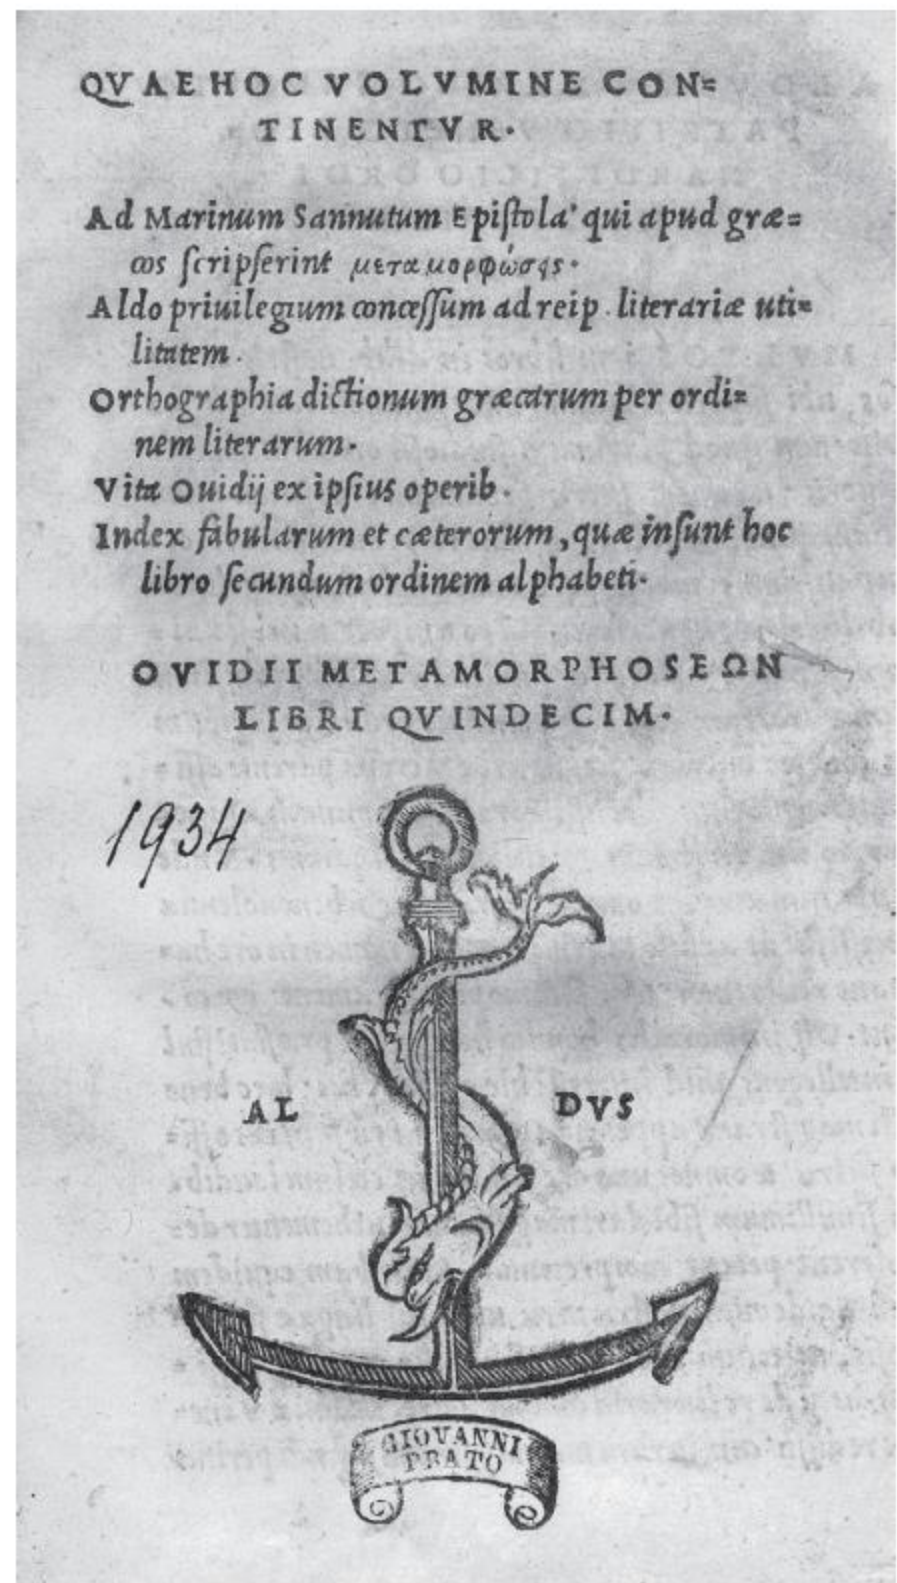 QVAE HOC VOLVMINE CON=
TINENTVR.
Ad Marinum Sannutum Epiſtola' qui apud græ=
cos ſcripſerint μεταμορφώσᾳς.
Aldo priuilegium conceſſum ad reip. literariæ uti=
litatem.
Orthographia dictionum græcarum per ordi=
nem literarum.
Vita Ouidij ex ipſius operib.
Index fabularum et cæterorum, quæ inſunt hoc
libro ſecundum ordinem alphabeti.
OVIDII METAMORPHOSEΩN
LIBRI QVINDECIM.
1934
AL DVS
GIOVANNI
PRATO